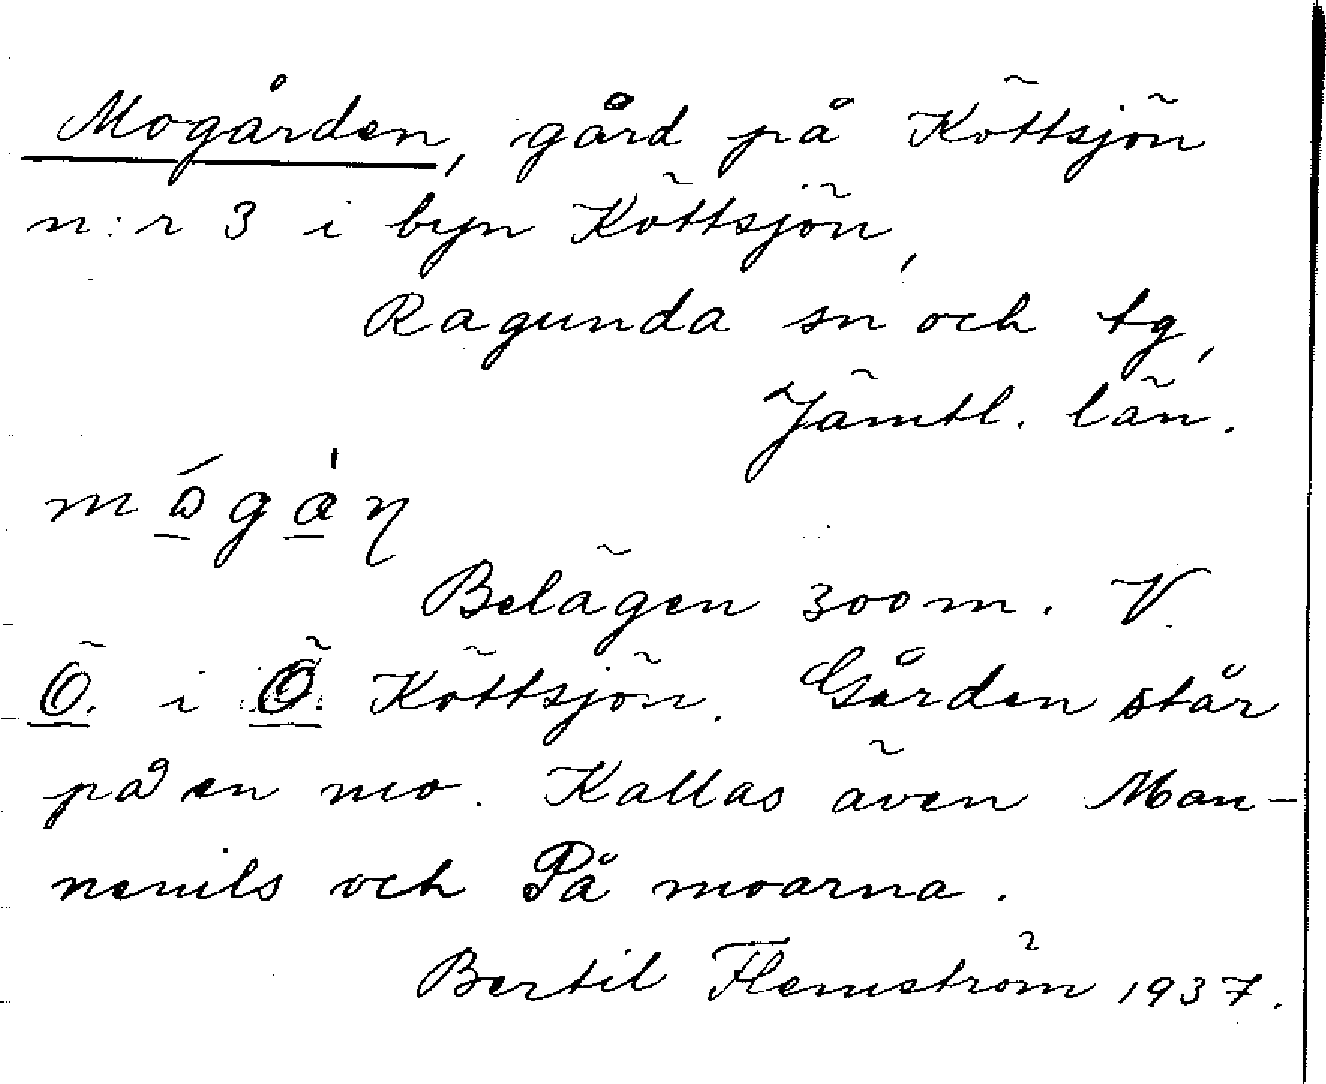 Mogården, gård på Köttsjön
n:r 3 i byn Köttsjön,
Ragunda sn och tg,
Jämtl. län.
mógàn
Belägen 300 m. V.
Ö. i Ö. Köttsjön. Gården står
på en mo. Kallas även Man-
nenils och På moarna.
Bertil Flemström 1937.